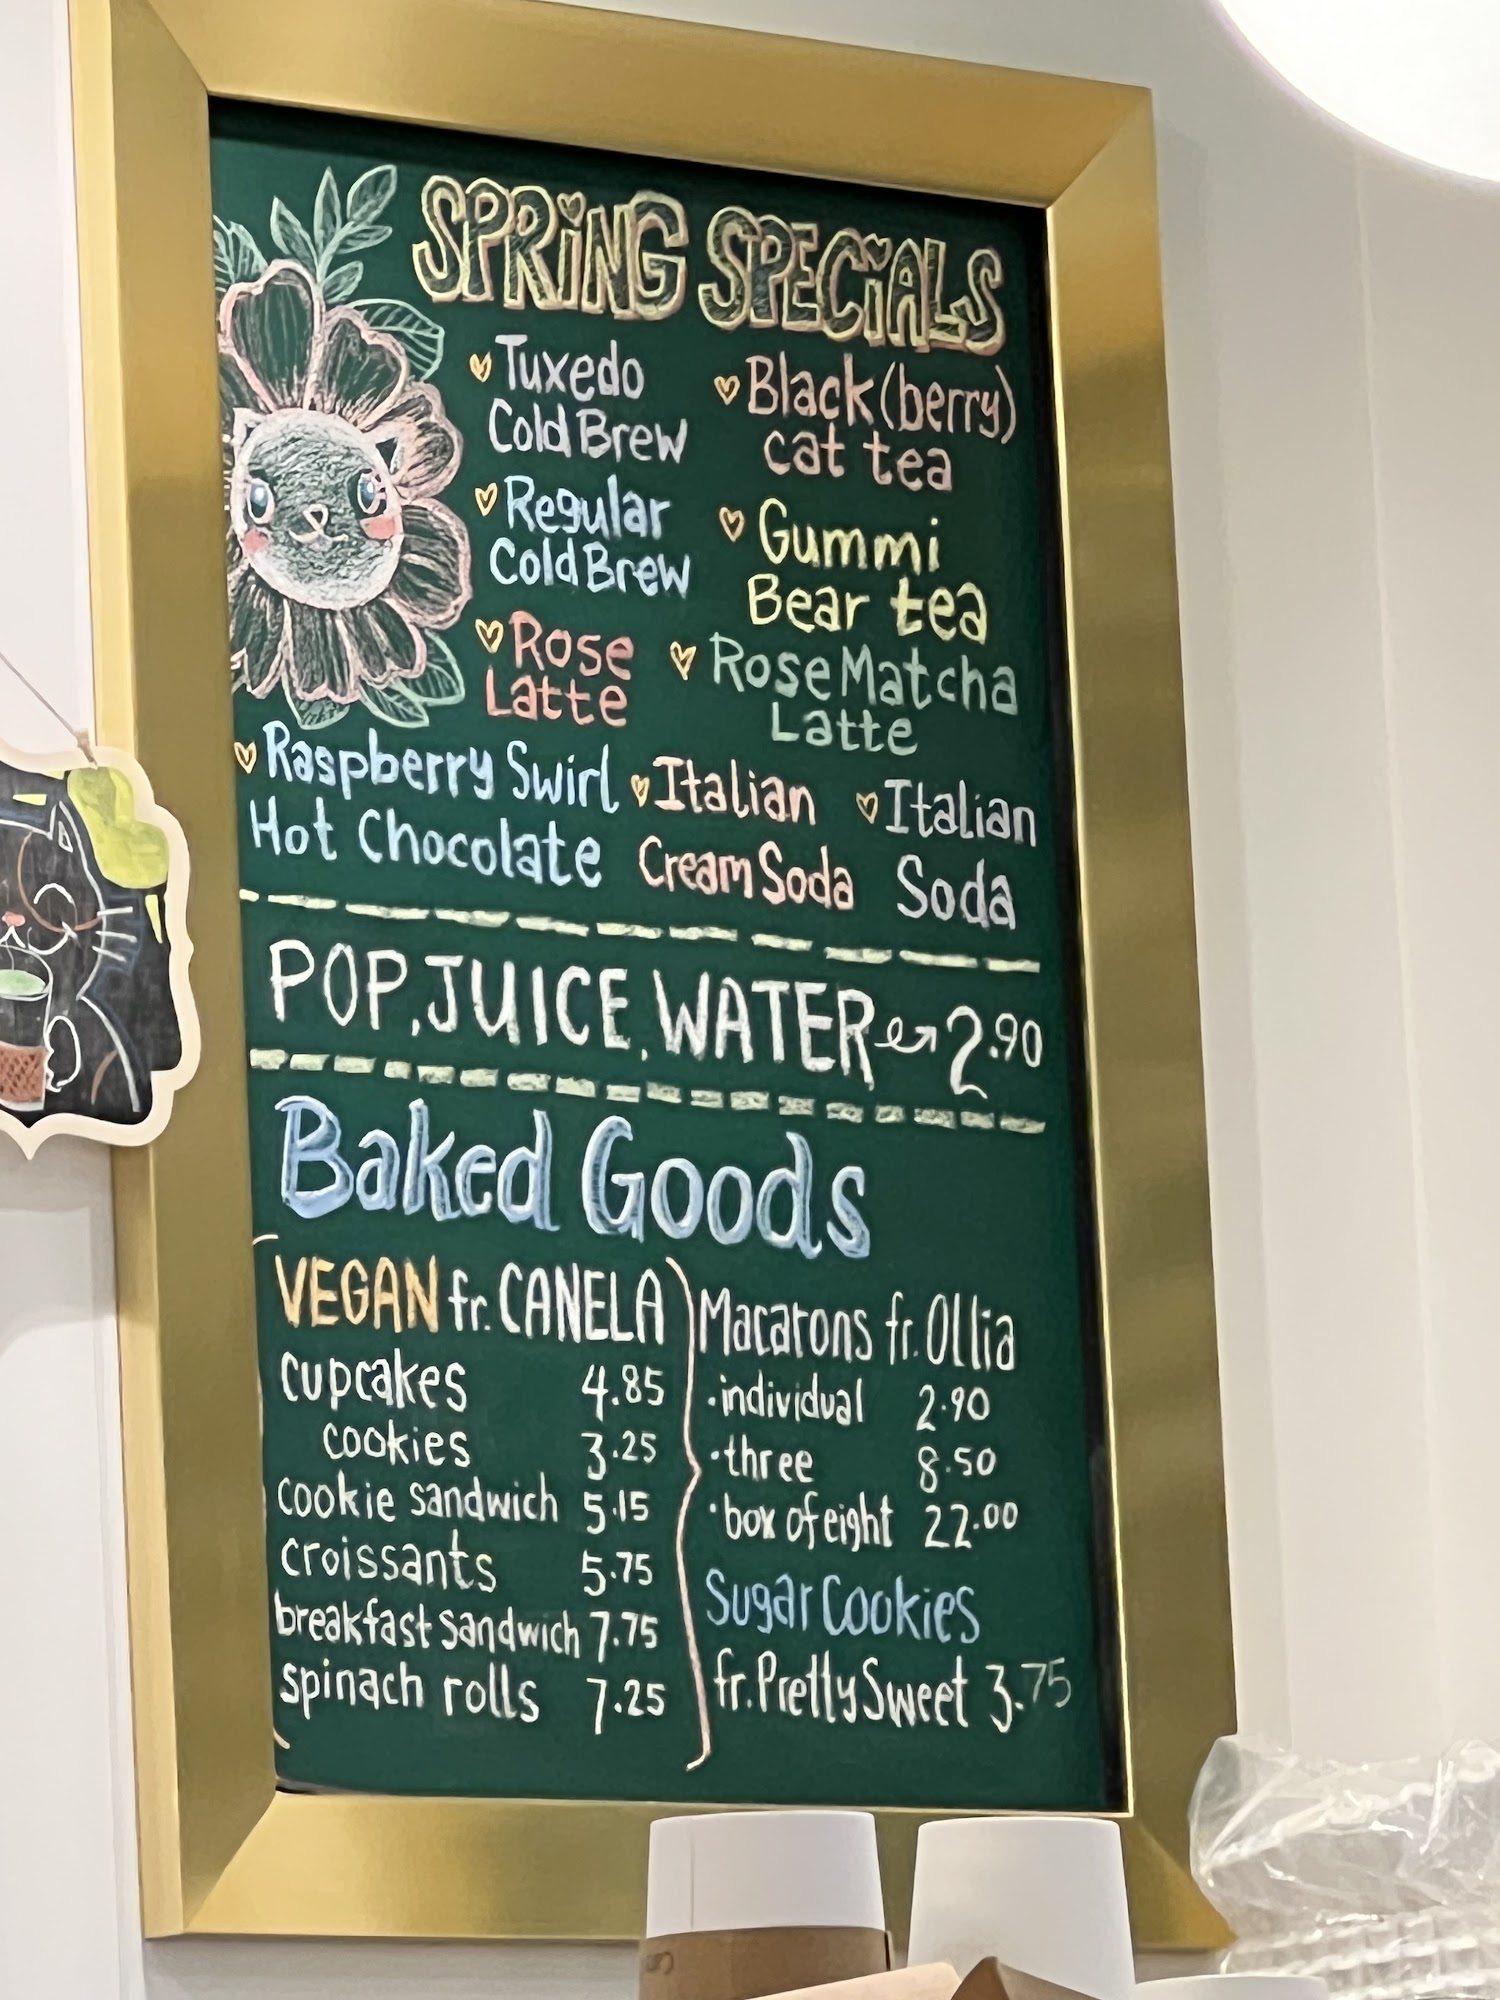 SPRING SPECIALS
Tuxedo
Cold Brew
Regular
Cold Brew
Rose
Latte
Black (berry)
cat tea
Gummi
Bear tea
Rose Matcha
Latte
Raspberry Swirl
Hot Chocolate
Italian
Cream Soda
Italian
Soda
POP, JUICE, WATER 2.90
Baked Goods
VEGAN fr. CANELA
cupcakes 4.85
cookies 3.25
cookie sandwich 5.15
croissants 5.75
breakfast sandwich 7.75
spinach rolls 7.25
Macarons fr. Ollia
· individual 2.90
· three 8.50
· box of eight 22.00
Sugar Cookies
fr. Pretty Sweet 3.75